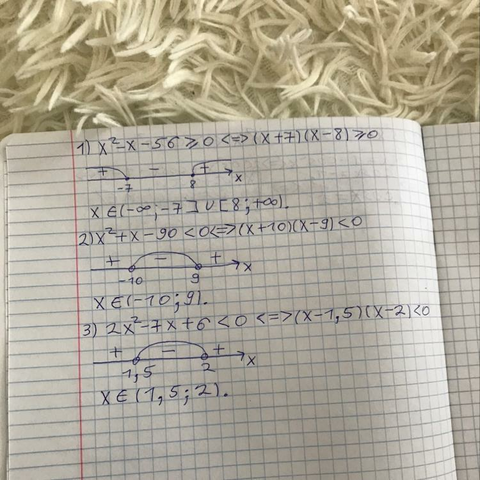 1) x²-x-56≥0<=>(x+7)(x-8)≥0
+ - +
-7 8 x
x∈(-∞;-7]∪[8;+∞).
2) x²+x-90<0<=>(x+10)(x-9)<0
+ - +
-10 9 x
x∈(-10;9).
3) 2x²-7x+6<0<=>(x-1,5)(x-2)<0
+ - +
1,5 2 x
x∈(1,5;2).